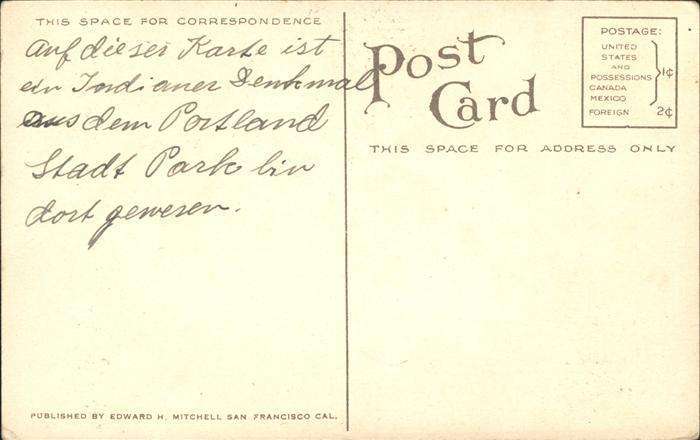 THIS SPACE FOR CORRESPONDENCE
Auf dieser Karte ist
ein Indianer Denkmal
aus dem Portland
Stadt Park bin
dort gewesen.
PUBLISHED BY EDWARD H. MITCHELL SAN FRANCISCO CAL.
Post
Card
THIS SPACE FOR ADDRESS ONLY
POSTAGE:
UNITED
STATES
AND
POSSESSIONS 1¢
CANADA
MEXICO
FOREIGN 2¢